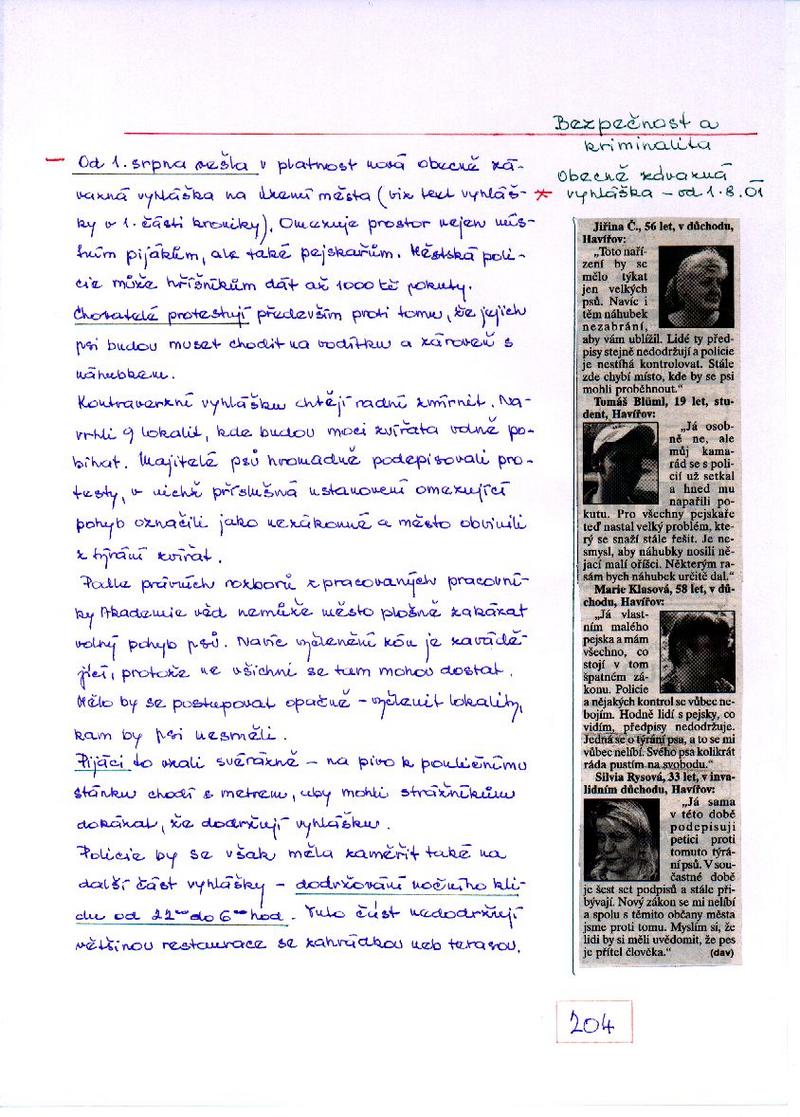 Bezpečnost a
kriminalita
Obecně závazná
vyhláška – od 1.8.01
– Od 1. srpna vešla v platnost nová obecně zá-
vazná vyhláška na území města (viz text vyhláš- *
ky v 1. části kroniky). Omezuje prostor nejen míst-
ním pijákům, ale také pejskařům. Městská poli-
cie může hříšníkům dát až 1000 Kč pokuty.
Chovatelé protestují především proti tomu, že jejich
psi budou muset chodit na vodítku a zároveň s
náhubkem.
Kontraverzní vyhlášku chtějí radní zmírnit. Na-
vrhli 9 lokalit, kde budou moci zvířata volně po-
bíhat. Majitelé psů hromadně podepisovali pro-
testy, v nichž příslušná ustanovení omezující
pohyb označili jako nezákonné a město obvinili
z týrání zvířat.
Podle právních rozborů zpracovaných pracovní-
ky Akademie věd nemůže město plošně zakázat
volný pohyb psů. Navíc vyčlenění zón je zavádě-
jící, protože ne všichni se tam mohou dostat.
Mělo by se postupovat opačně – vyčlenit lokality,
kam by psi nesměli.
Pijáci to vzali svérázně – na pivo k pouličnímu
stánku chodí s metrem, aby mohli strážníkům
dokázat, že dodržují vyhlášku.
Policie by se však měla zaměřit také na
další část vyhlášky – dodržování nočního kli-
du od 22⁰⁰ do 6⁰⁰ hod. Tuto část nedodržují
většinou restaurace se zahrádkou neb terasou.
Jiřina Č., 56 let, v důchodu,
Havířov:
„Toto naří-
zení by se
mělo týkat
jen velkých
psů. Navíc i
těm náhubek
nezabrání,
aby vám ublížil. Lidé ty před-
pisy stejně nedodržují a policie
je nestíhá kontrolovat. Stále
zde chybí místo, kde by se psi
mohli proběhnout.“
Tomáš Blüml, 19 let, stu-
dent, Havířov:
„Já osob-
ně ne, ale
můj kama-
rád se s poli-
cií už setkal
a hned mu
napařili po-
kutu. Pro všechny pejskaře
teď nastal velký problém, kte-
rý se snaží stále řešit. Je ne-
smysl, aby náhubky nosili ně-
jací malí oříšci. Některým ra-
sám bych náhubek určitě dal.“
Marie Klasová, 58 let, v dů-
chodu, Havířov:
„Já vlast-
ním malého
pejska a mám
všechno, co
stojí v tom
špatném zá-
konu. Policie
a nějakých kontrol se vůbec ne-
bojím. Hodně lidí s pejsky, co
vidím, předpisy nedodržuje.
Jedná se o týrání psa, a to se mi
vůbec nelíbí. Svého psa kolikrát
ráda pustím na svobodu.“
Silvia Rysová, 33 let, v inva-
lidním důchodu, Havířov:
„Já sama
v této době
podepisuji
petici proti
tomuto týrá-
ní psů. V sou-
časné době
je šest set podpisů a stále při-
bývají. Nový zákon se mi nelíbí
a spolu s těmito občany města
jsme proti tomu. Myslím si, že
lidi by si měli uvědomit, že pes
je přítel člověka.“ (dav)
204